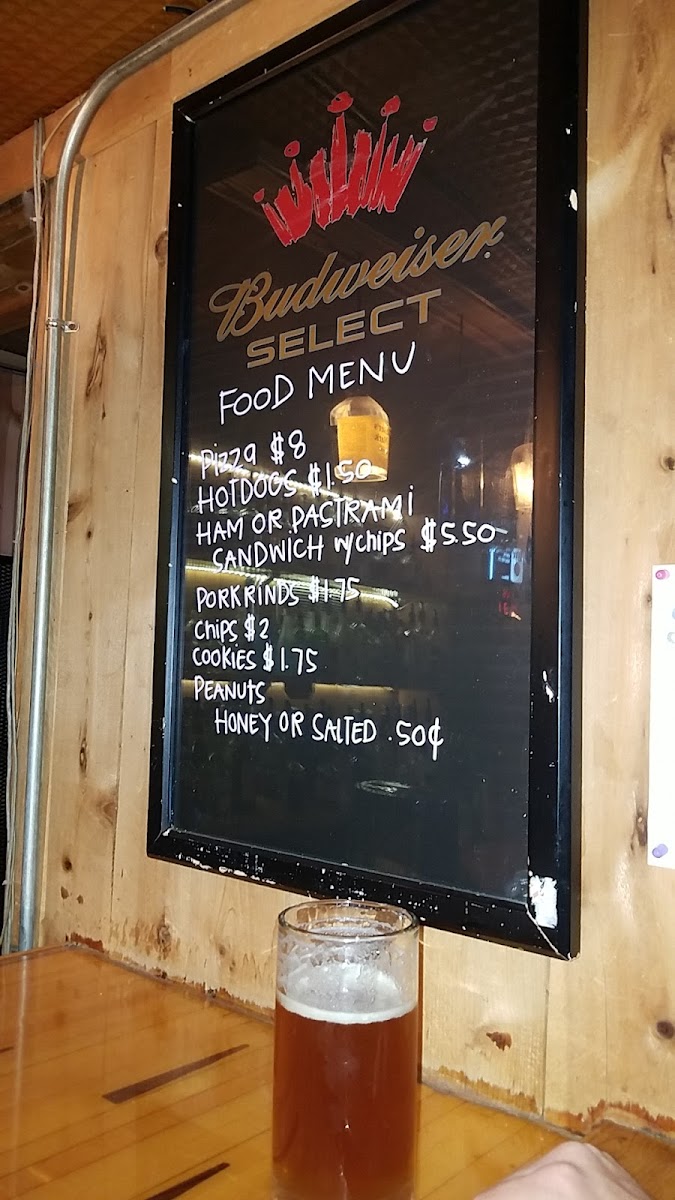 Budweiser
SELECT
FOOD MENU
Pizza $8
HOTDOGS $1.50
HAM OR PASTRAMI
SANDWICH w/chips $5.50
PORK RINDS $1.75
chips $2
COOKIES $1.75
PEANUTS
HONEY OR SALTED .50¢